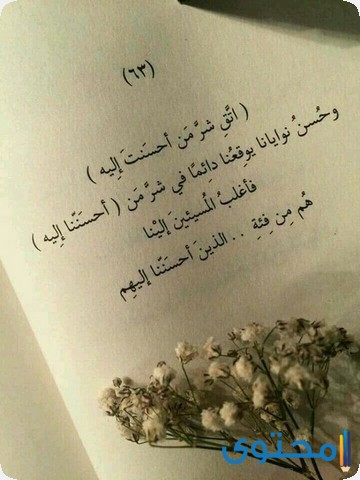 (٦٣)
( اتَّقِ شرَّ مَن أحسَنتَ إليه )
وحُسنُ نوايانا يوقِعُنا دائِمًا في شرَّ مَن ( أحسَنَّا إليه )
فأغلبُ المُسيئينَ إليْنا
هُم مِن فِئةِ .. الذينَ أحسَنَّا إليهِم
محتوى